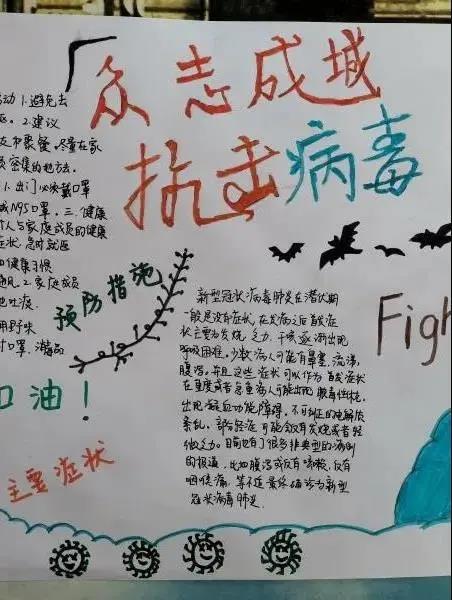 众志成城
抗击病毒
动 1.避免去
2.建议
友和聚餐,尽量在家
员密集的地方。
1.出门必须戴口罩
或N95口罩。三.健康
个人与家庭成员的健康
症状,及时就医
健康习惯
2.家庭成员
地吐痰.
用野味
口罩,消毒品
加油!
预防措施
主要症状
新型冠状病毒肺炎在潜伏期
一般是没有症状,在发病之后首发症
状主要为发烧、乏力、干咳,逐渐出现
呼吸困难,少数病人可能有鼻塞、流涕、
腹泻,并且这些症状可以作为首发症状
在重度或者危重病人可能出现
出现凝血功能障碍,不可纠正的电解质
紊乱,部分轻症可能会仅有发烧或者轻
微乏力。目前也有了很多非典型的病例
的报道,比如腹泻或仅有咳嗽,仅有
咽疼痛,等不适最终确诊为新型
冠状病毒肺炎
Figh